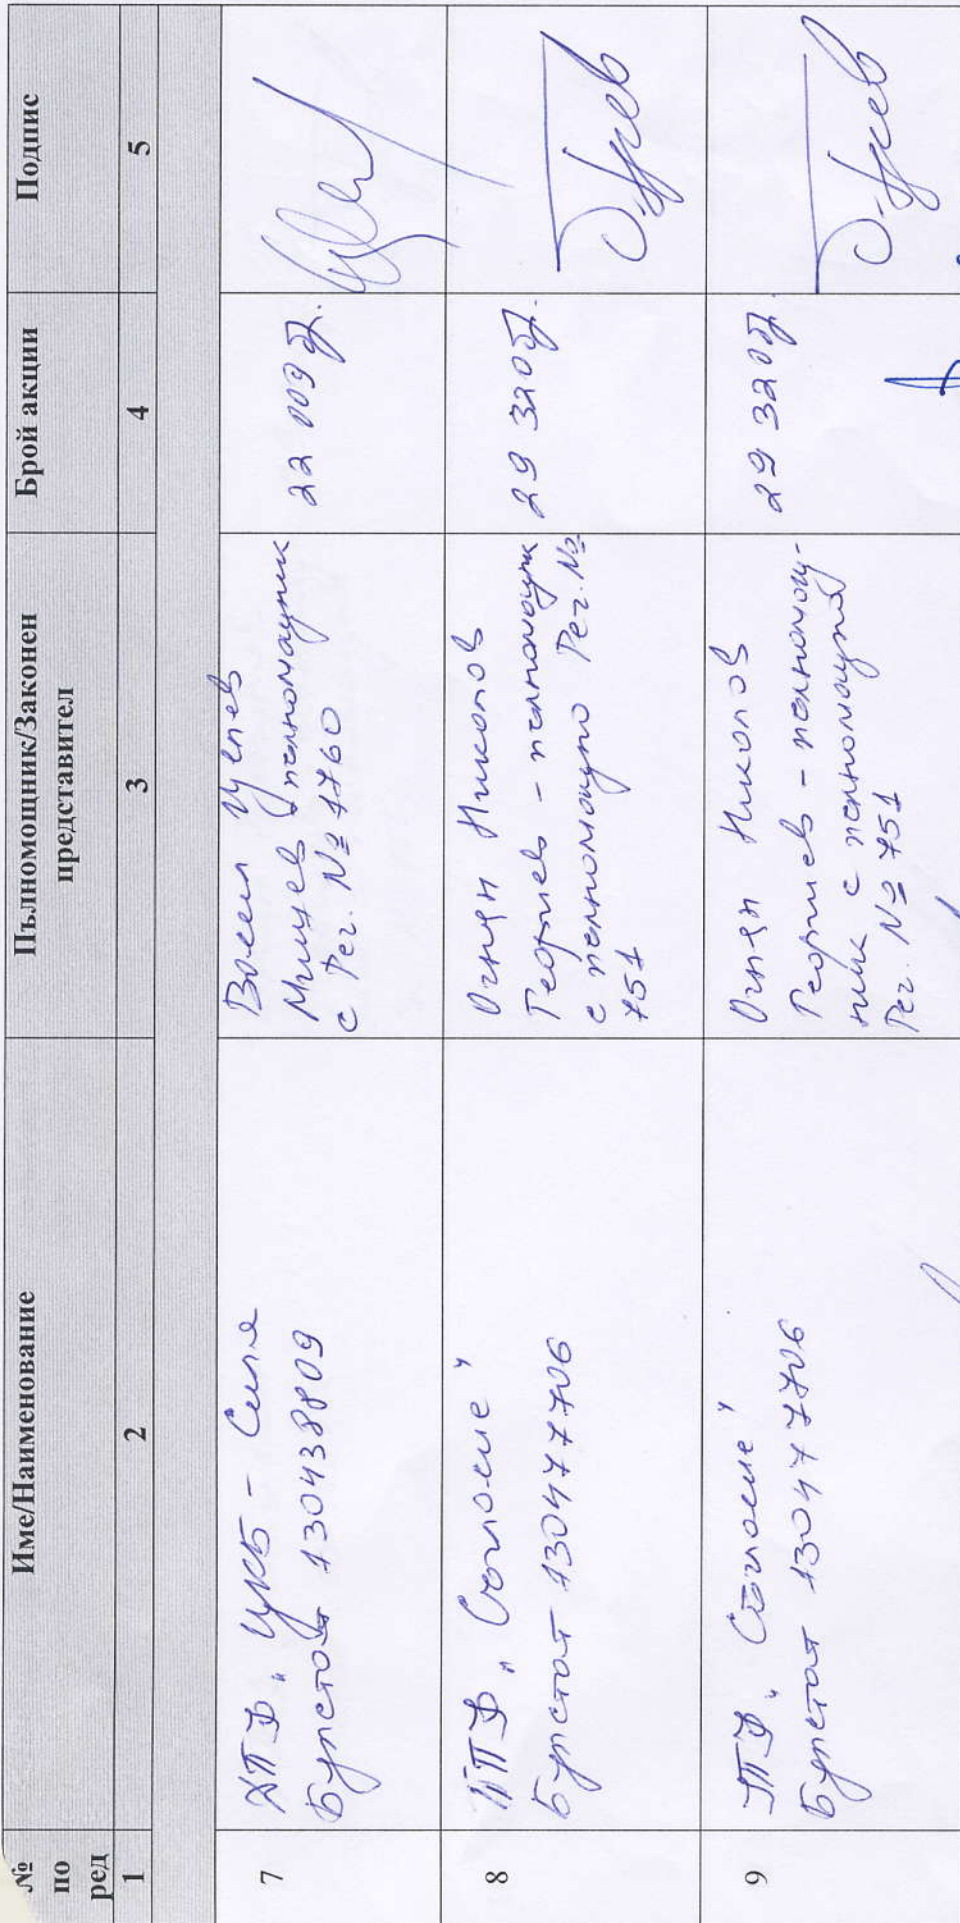 № по ред Име/Наименование Пълномощник/Законен представител Брой акции Подпис
1 2 3 4 5
7
ДПФ „ЦКБ - Сила
Булстат 130438809
Васил Цулев
Мишев пълномощник
с Рег. № 1760
22 009 бр.
8
ППФ „Съгласие"
Булстат 130477706
Огнян Николов
Георгиев - пълномощник
с пълномощно Рег. №
751
29 320 бр.
9
УПФ „Съгласие"
Булстат 130477706
Огнян Николов
Георгиев - пълномощ-
ник с пълномощно
Рег. № 751
29 320 бр.